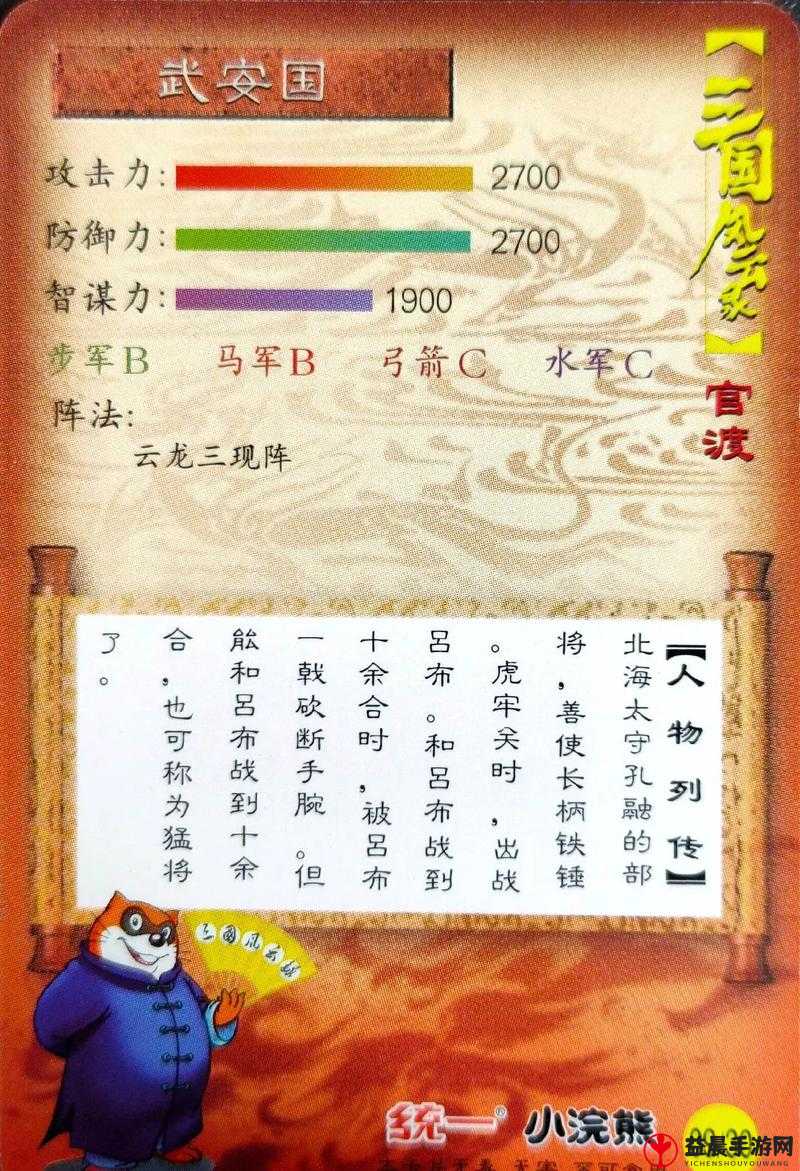 武安国
【三国风云录】
官渡
攻击力: 2700
防御力: 2700
智谋力: 1900
步军B 马军B 弓箭C 水军C
阵法:
云龙三现阵
【人物列传】
北海太守孔融的部
将，善使长柄铁锤
。虎牢关时，出战
吕布。和吕布战到
十余合时，被吕布
一戟砍断手腕。但
能和吕布战到十余
合，也可称为猛将
了。
三國風云録
统一® 小浣熊
益晨手游网
YICHENSHOUYOUWANG